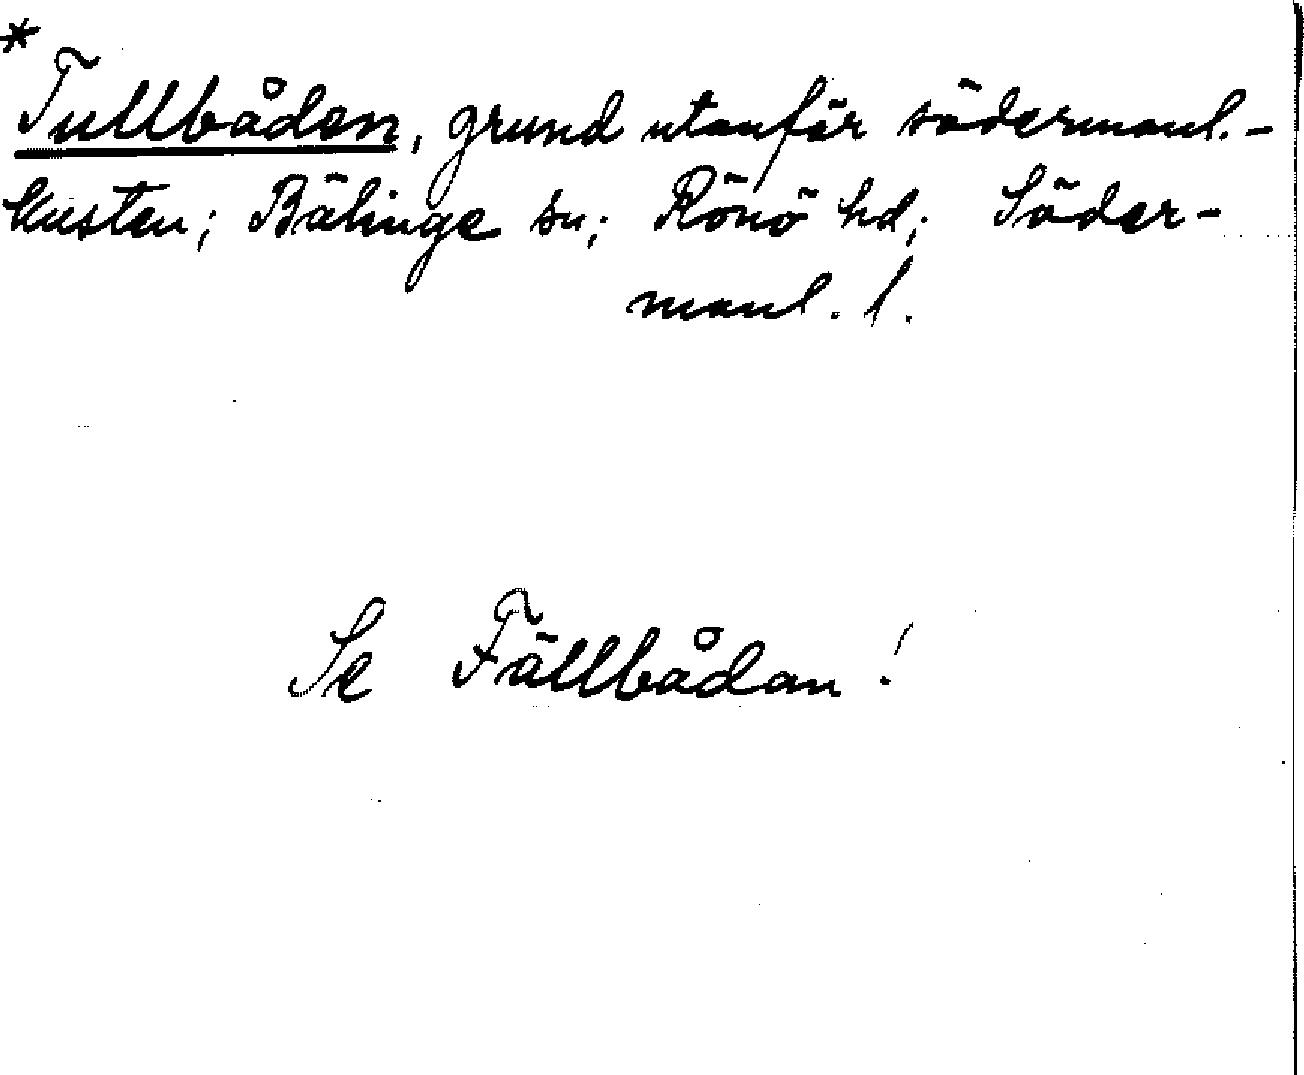 *
Tullbådan, grund utanför södermanl.-
kusten; Bälinge sn; Rönö hd; Söder-
manl. l.
Se Fällbådan!